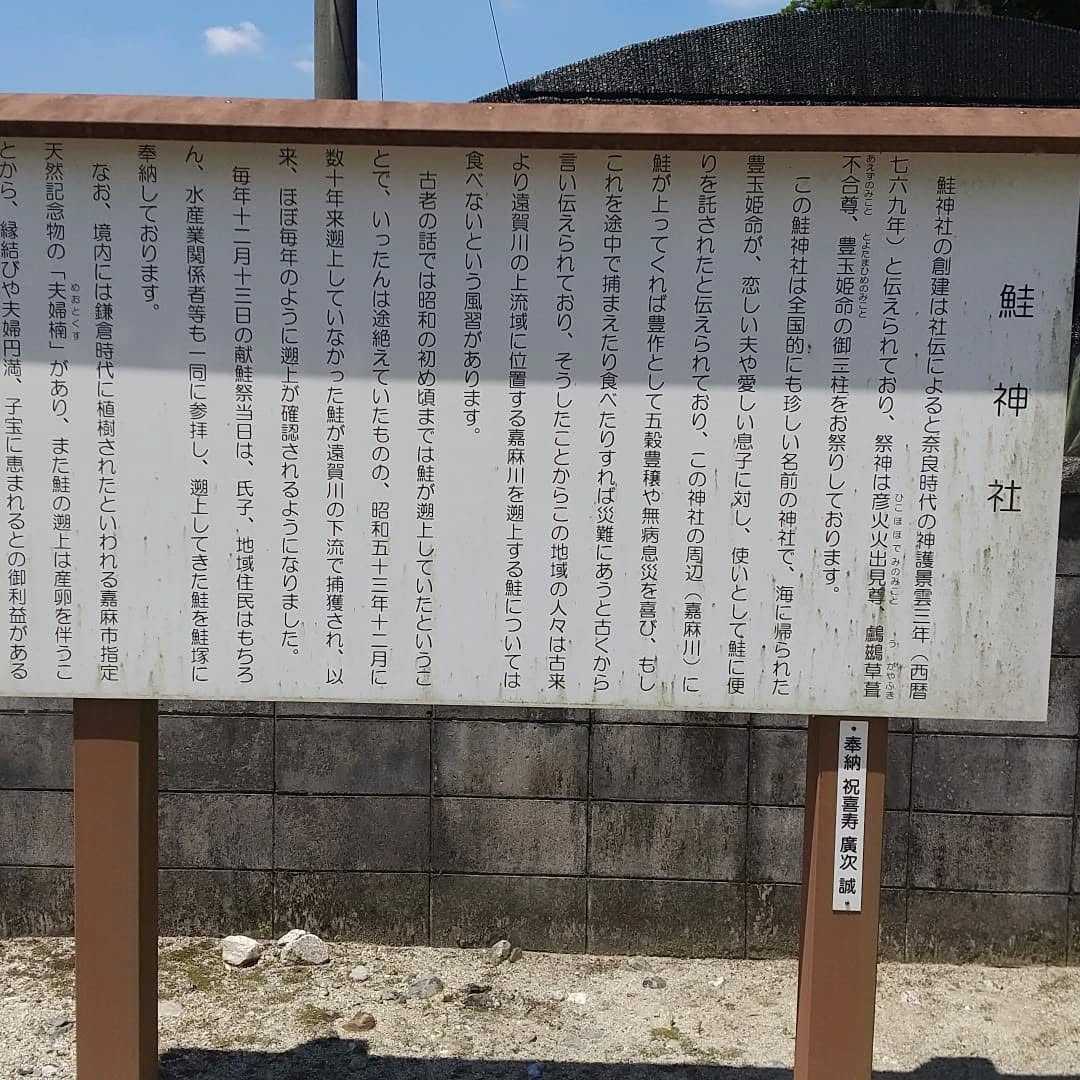 鮭神社
鮭神社の創建は社伝によると奈良時代の神護景雲三年（西暦
七六九年）と伝えられており、祭神は彦火火出見尊、鸕鷀草葺
ひこほほでみのみこと
う がやふき
不合尊、豊玉姫命の御三柱をお祭りしております。
あえずのみこと
とよたまひめのみこと
この鮭神社は全国的にも珍しい名前の神社で、海に帰られた
豊玉姫命が、恋しい夫や愛しい息子に対し、使いとして鮭に便
りを託されたと伝えられており、この神社の周辺（嘉麻川）に
鮭が上ってくれば豊作として五穀豊穣や無病息災を喜び、もし
これを途中で捕まえたり食べたりすれば災難にあうと古くから
言い伝えられており、そうしたことからこの地域の人々は古来
より遠賀川の上流域に位置する嘉麻川を遡上する鮭については
食べないという風習があります。
古老の話では昭和の初め頃までは鮭が遡上していたというこ
とで、いったんは途絶えていたものの、昭和五十三年十二月に
数十年来遡上していなかった鮭が遠賀川の下流で捕獲され、以
来、ほぼ毎年のように遡上が確認されるようになりました。
毎年十二月十三日の献鮭祭当日は、氏子、地域住民はもちろ
ん、水産業関係者等も一同に参拝し、遡上してきた鮭を鮭塚に
奉納しております。
なお、境内には鎌倉時代に植樹されたといわれる嘉麻市指定
天然記念物の「夫婦楠」があり、また鮭の遡上は産卵を伴うこ
めおとくす
とから、縁結びや夫婦円満、子宝に恵まれるとの御利益がある
奉納 祝喜寿 廣次 誠